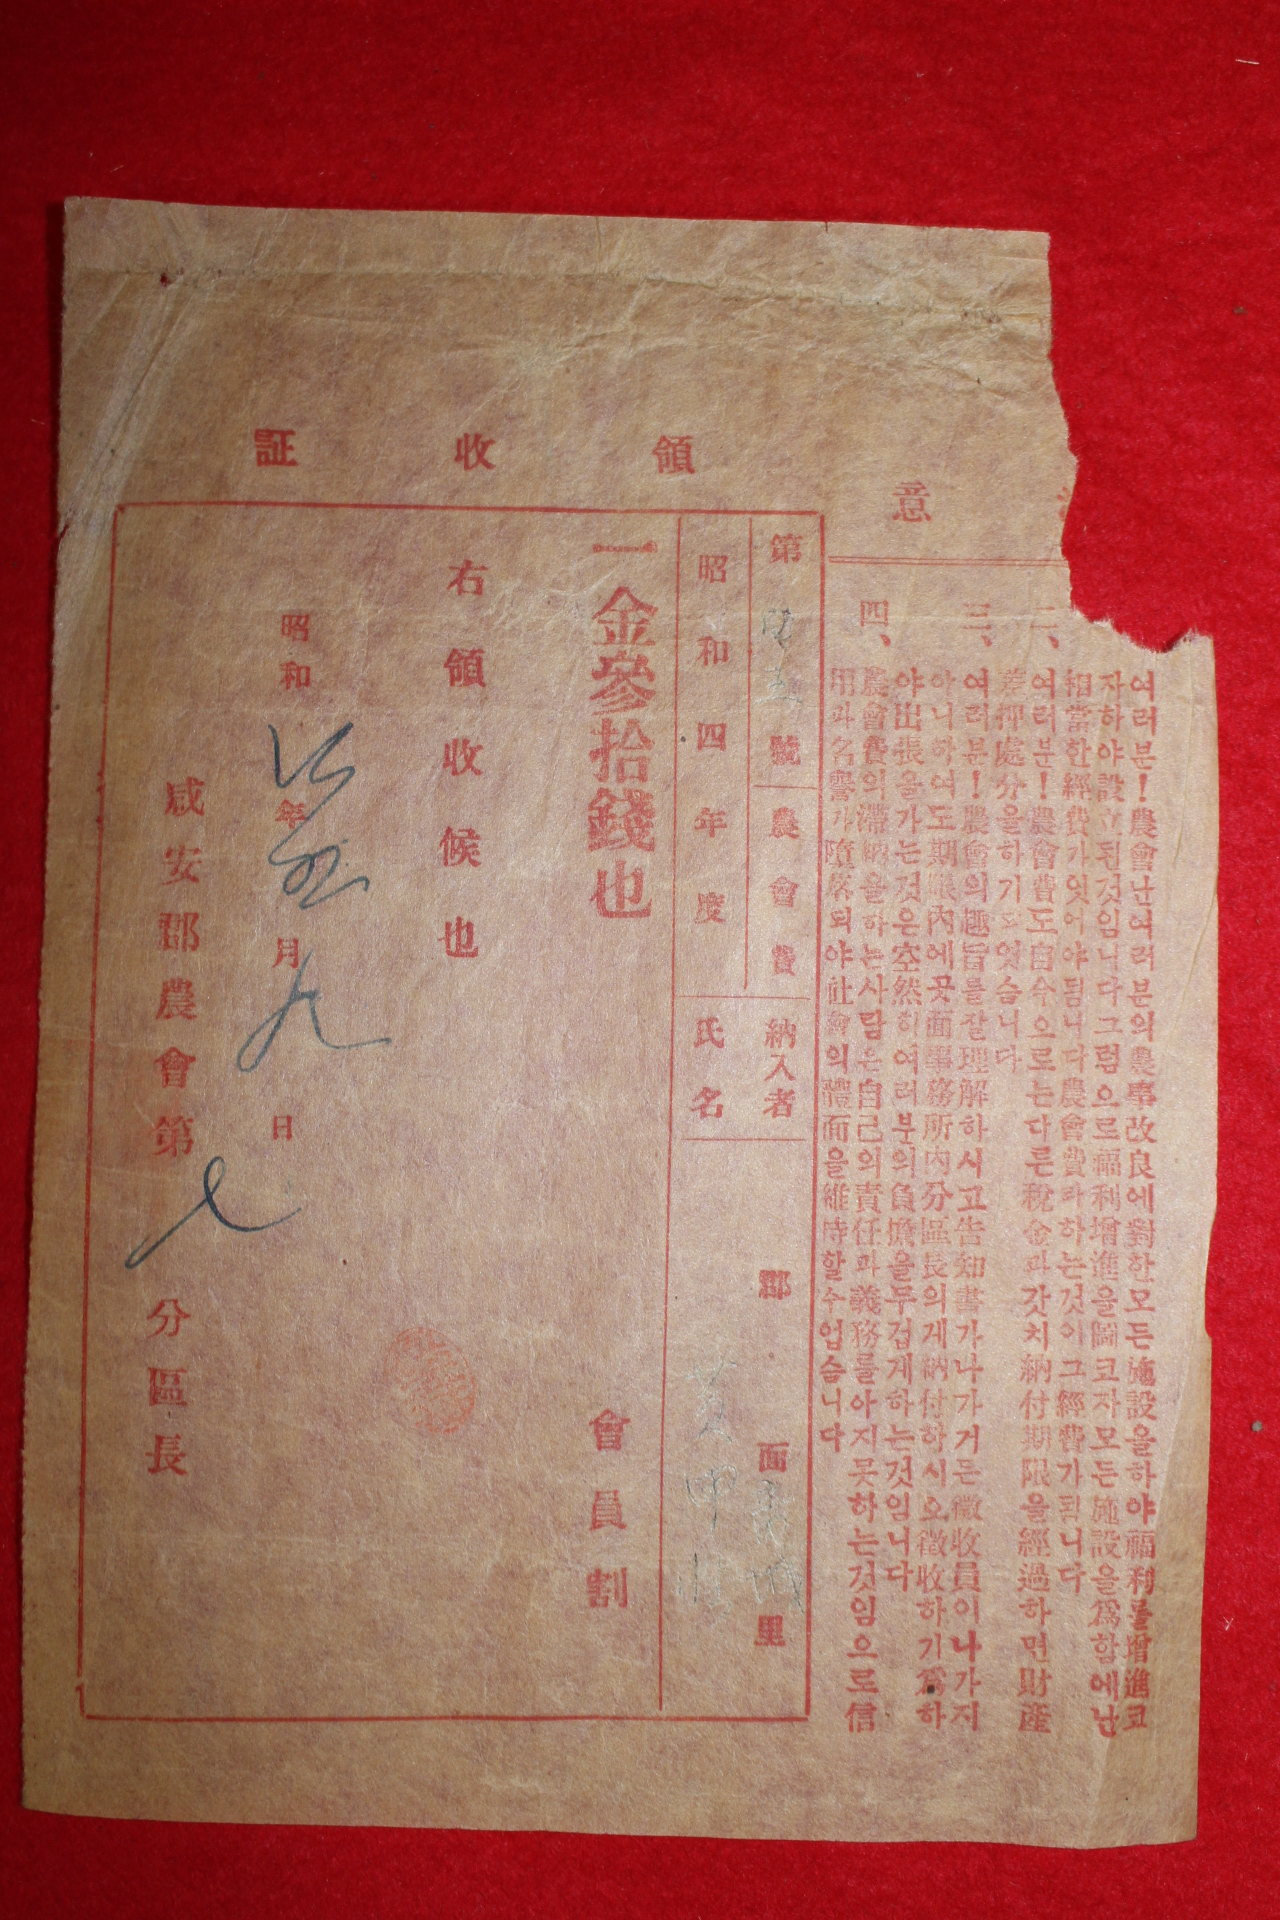 意
여러분!農會난여러분의農事改良에對한모든施設을하야福利를增進코
자하야設立된것임니다그럼으로福利增進을圖코자모든施設을爲함에난
相當한經費가잇어야됨니다農會費라하는것이그經費가됨니다
二、여러분!農會費도自今으로는다른稅金과갓치納付期限을經過하면財産
差押處分을하기되엿슴니다
三、여러분!農會의趣旨를잘理解하시고告知書가나가거든徵收員이나가지
아니하여도期限內에곳面事務所內分區長의게納付하시오徵收하기爲하
야出張을가는것은空然히여러분의負擔을무겁게하는것임니다
四、農會費의滯納을하는사람은自己의責任과義務를아지못하는것임으로信
用과名譽가墮落되야社會의體面을維持할수업슴니다
領收証
第 號 農會費 納入者 郡 面 里
昭和四年度 氏名
一金參拾錢也 會員割
右領收候也
昭和 年 月 九 日
咸安郡農會第 七 分區長